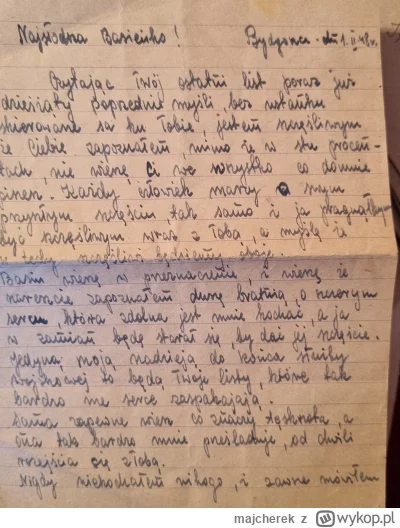 Najsłodsza Basieńko! Bydgoszcz dn 1.II.48r.
Czytając Twój ostatni list poraz już
dziesiąty poprzednie myśli, bez ustanku
skierowane są ku Tobie, jestem szczęśliwym
że Ciebie zapoznałem, mimo że w stu procen-
tach, nie wierzę Ci we wszystko co do mnie
piszesz. Każdy człowiek marzy o swym
przyszłym szczęściu, tak samo i ja pragnąłbym
być szczęśliwym wraz z Tobą, a myślę że
kiedy szczęśliwi będziemy oboje.
Basiu wierzę w przeznaczenie, i wierzę że
nareszcie zapoznałem duszę bratnią, o szczerym
sercu, która zdolna jest mnie kochać, a ja
w zamian będę starał się, by dać jej szczęście.
Jedyną moją nadzieją do końca służby
wojskowej to będą Twoje listy, które tak
bardzo me serce zaspakajają.
Sama zapewne wiesz co znaczy tęsknota, a
ona tak bardzo mnie prześladuje, od chwili
rozejścia się z Tobą.
Nigdy niekochałem nikogo, i zawsze mówiłem
majcherek z wykop.pl